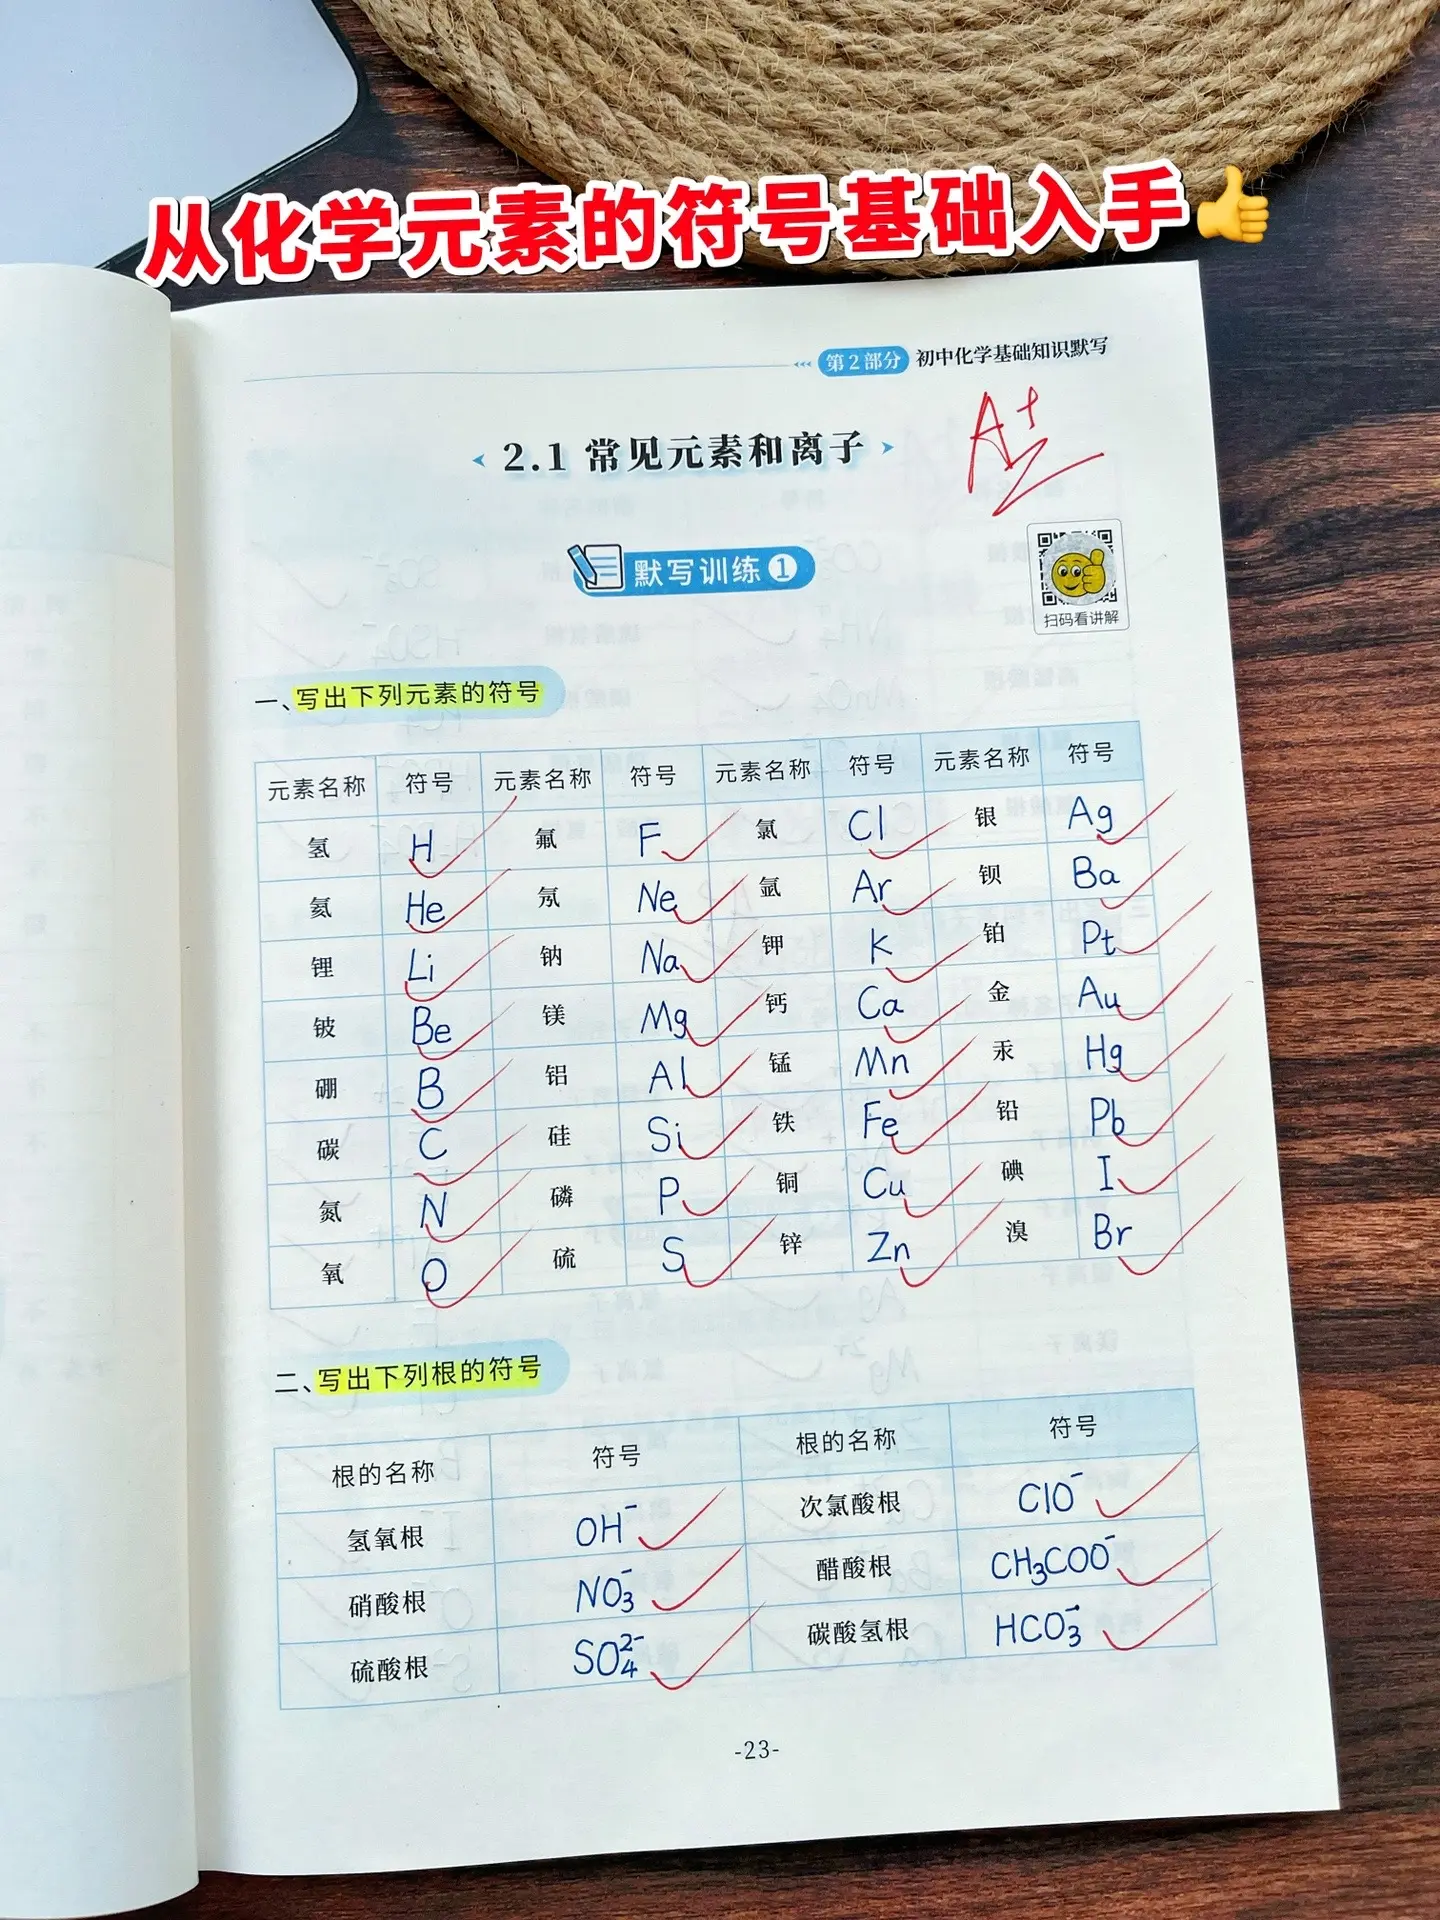 从化学元素的符号基础入手👍
第2部分 初中化学基础知识默写
A+
2.1 常见元素和离子
默写训练1
扫码看讲解
一、写出下列元素的符号
元素名称 符号 元素名称 符号 元素名称 符号 元素名称 符号
氢 H 氟 F 氯 Cl 银 Ag
氦 He 氖 Ne 氩 Ar 钡 Ba
锂 Li 钠 Na 钾 K 铂 Pt
铍 Be 镁 Mg 钙 Ca 金 Au
硼 B 铝 Al 锰 Mn 汞 Hg
碳 C 硅 Si 铁 Fe 铅 Pb
氮 N 磷 P 铜 Cu 碘 I
氧 O 硫 S 锌 Zn 溴 Br
二、写出下列根的符号
根的名称 符号 根的名称 符号
氢氧根 OH⁻ 次氯酸根 ClO⁻
硝酸根 NO₃⁻ 醋酸根 CH₃COO⁻
硫酸根 SO₄²⁻ 碳酸氢根 HCO₃⁻
-23-